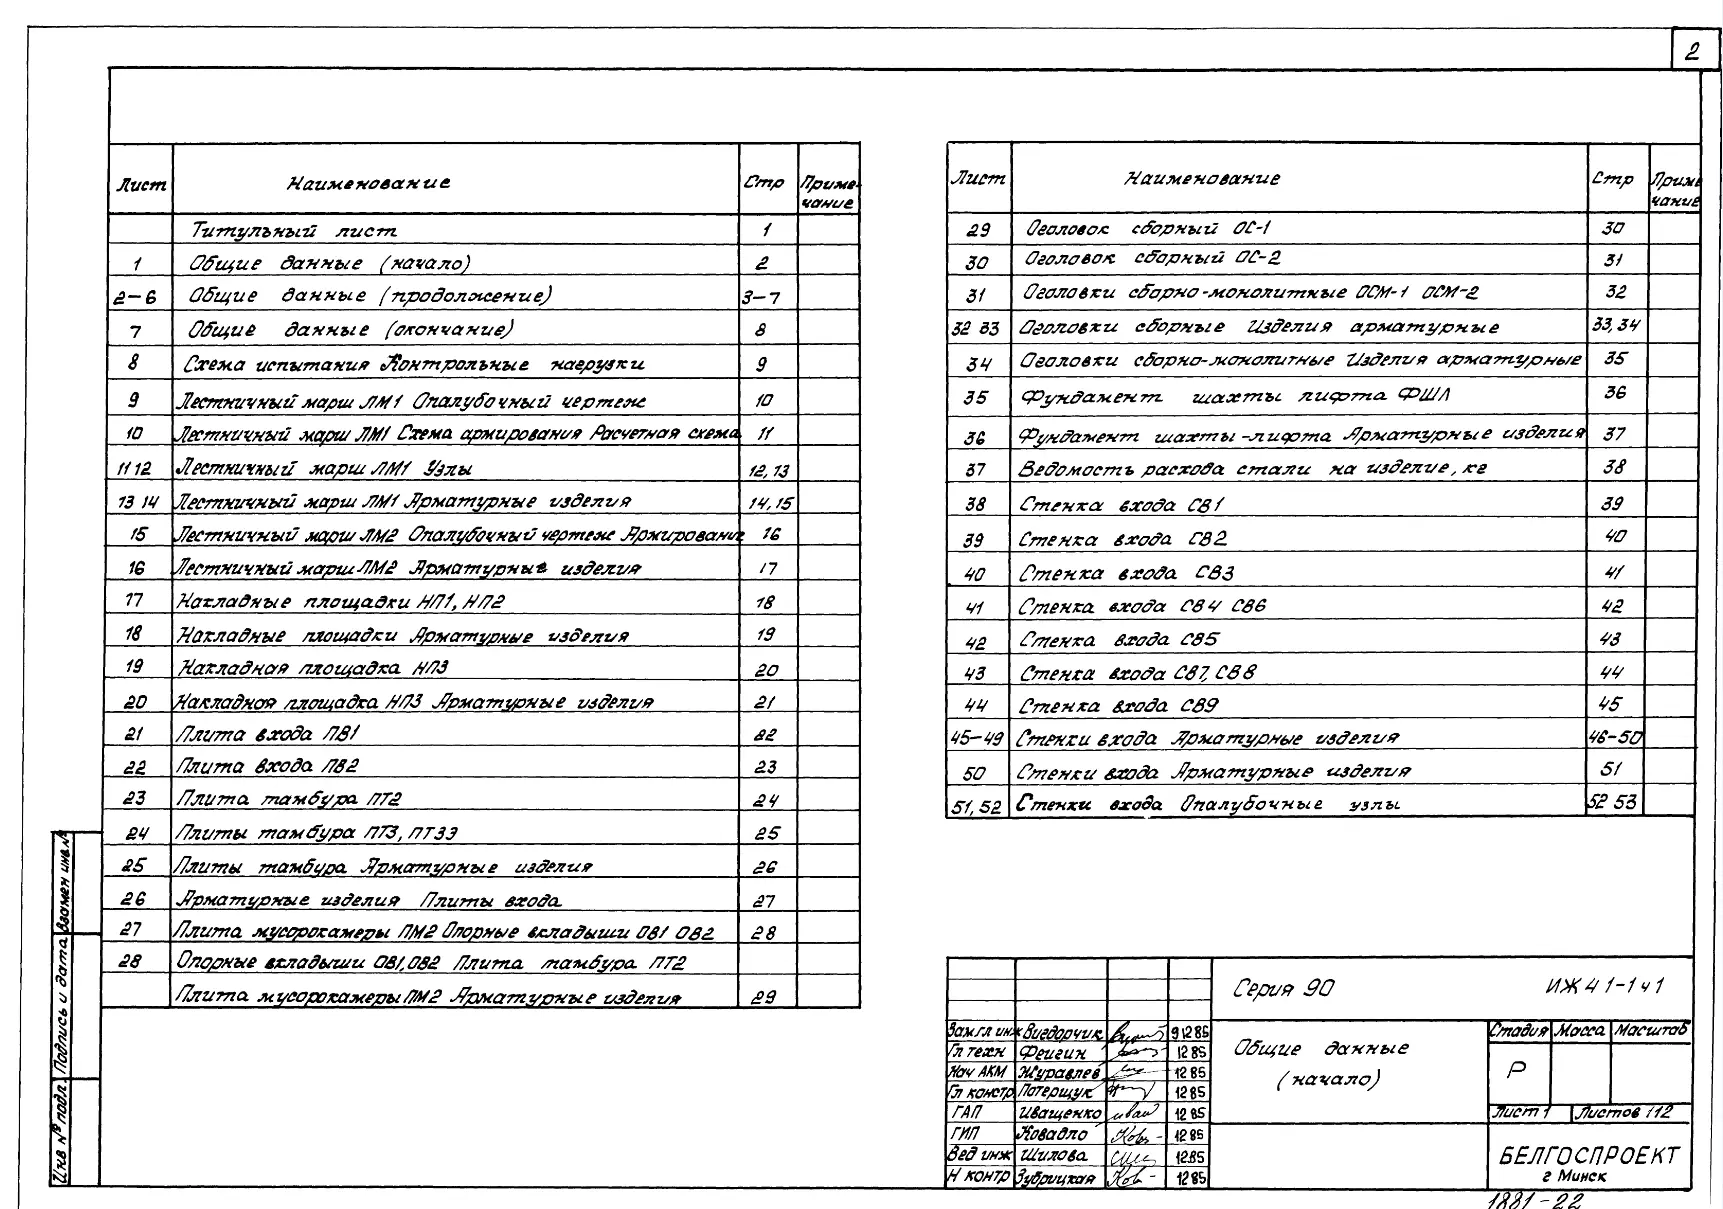 2
Лист Наименование Стр Приме-
чание
Титульный лист 1
1 Общие данные (начало) 2
2-6 Общие данные (продолжение) 3-7
7 Общие данные (окончание) 8
8 Схема испытания Контрольные нагрузки 9
9 Лестничный марш ЛМ1 Опалубочный чертеж 10
10 Лестничный марш ЛМ1 Схема армирования Расчетная схема 11
11 12 Лестничный марш ЛМ1 Узлы 12,13
13 14 Лестничный марш ЛМ1 Арматурные изделия 14,15
15 Лестничный марш ЛМ2 Опалубочный чертеж Армирование 16
16 Лестничный марш ЛМ2 Арматурные изделия 17
17 Накладные площадки НП1, НП2 18
18 Накладные площадки Арматурные изделия 19
19 Накладная площадка НП3 20
20 Накладная площадка НП3 Арматурные изделия 21
21 Плита входа ПВ1 22
22 Плита входа ПВ2 23
23 Плита тамбура ПТ2 24
24 Плиты тамбура ПТ3, ПТ3Э 25
25 Плиты тамбура Арматурные изделия 26
26 Арматурные изделия Плиты входа 27
27 Плита мусорокамеры ПМ2 Опорные вкладыши ОВ1 ОВ2 28
28 Опорные вкладыши ОВ1,ОВ2 Плита тамбура ПТ2
Плита мусорокамеры ПМ2 Арматурные изделия 29
Лист Наименование Стр Приме
чание
29 Оголовок сборный ОС-1 30
30 Оголовок сборный ОС-2 31
31 Оголовки сборно-монолитные ОСМ-1 ОСМ-2 32
32 33 Оголовки сборные Изделия арматурные 33,34
34 Оголовки сборно-монолитные Изделия арматурные 35
35 Фундамент шахты лифта ФШЛ 36
36 Фундамент шахты-лифта Арматурные изделия 37
37 Ведомость расхода стали на изделие, кг 38
38 Стенка входа СВ1 39
39 Стенка входа СВ2 40
40 Стенка входа СВ3 41
41 Стенка входа СВ4 СВ6 42
42 Стенка входа СВ5 43
43 Стенка входа СВ7, СВ8 44
44 Стенка входа СВ9 45
45-49 Стенки входа Арматурные изделия 46-50
50 Стенки входа Арматурные изделия 51
51,52 Стенки входа Опалубочные узлы 52 53
Взамен инв.№
Подпись и дата
Инв № подл.
Серия 90 ИЖ41-1ч1
Зам.гл инж Вигдорчик 9 12 85
Гл техн Фейгин 12 85
Нач АКМ Журавлев 12 85
Гл констр Патерщук 12 85
ГАП Иващенко 12 85
ГИП Ковадло 12 85
Вед инж Шилова 12.85
Н контр Зубрицкая 12 85
Общие данные
(начало)
Стадия Масса Масштаб
Р
Лист 1 Листов 112
БЕЛГОСПРОЕКТ
г Минск
1881-22